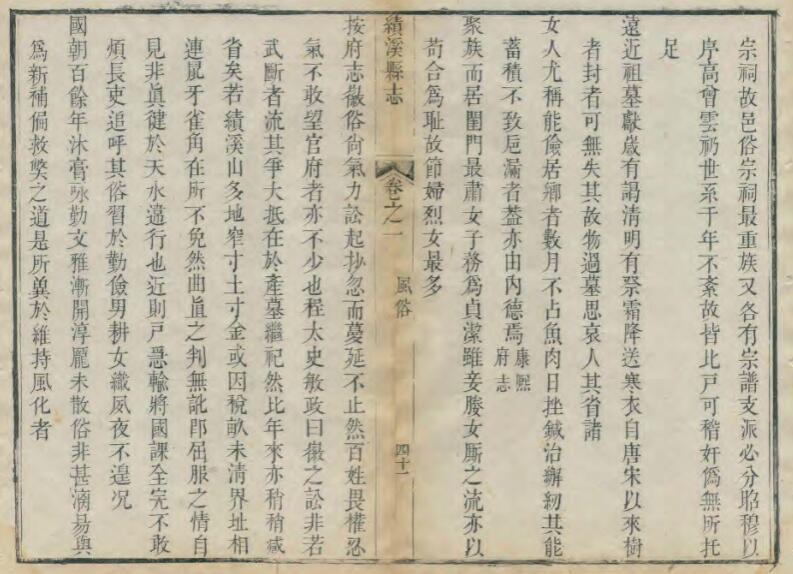 宗祠故邑俗宗祠最重族又各有宗譜支派必分昭穆以
序高曾雲礽世系千年不紊故皆比戶可稽奸僞無所托
足
遠近祖墓獻歲有謁清明有祭霜降送寒衣自唐宋以來樹
者封者可無失其故物過墓思哀人其省諸
女人尤稱能儉居鄉者數月不占魚肉日挫鍼治繲紉其能
蓄積不致巵漏者蓋亦由内德焉康熙府志
聚族而居閨門最肅女子務爲貞潔雖妾媵女厮之流亦以
苟合爲恥故節婦烈女最多
績溪縣志 卷之一 風俗 四十一
按府志徽俗尙氣力訟起抄忽而蔓延不止然百姓畏權忍
氣不敢望官府者亦不少也程太史敏政曰徽之訟非若
武斷者流其爭大抵在於產墓繼祀然比年來亦稍稍減
省矣若績溪山多地窄寸土寸金或因稅畝未清界址相
連鼠牙雀角在所不免然曲直之判無訛卽屈服之情自
見非眞健於天水違行也近則戶恐輸將國課全完不敢
煩長吏追呼其俗習於勤儉男耕女織夙夜不遑况
國朝百餘年沐膏咏勤文雅漸開淳龎未散俗非甚漓易與
爲新補偏救獘之道是所冀於維持風化者